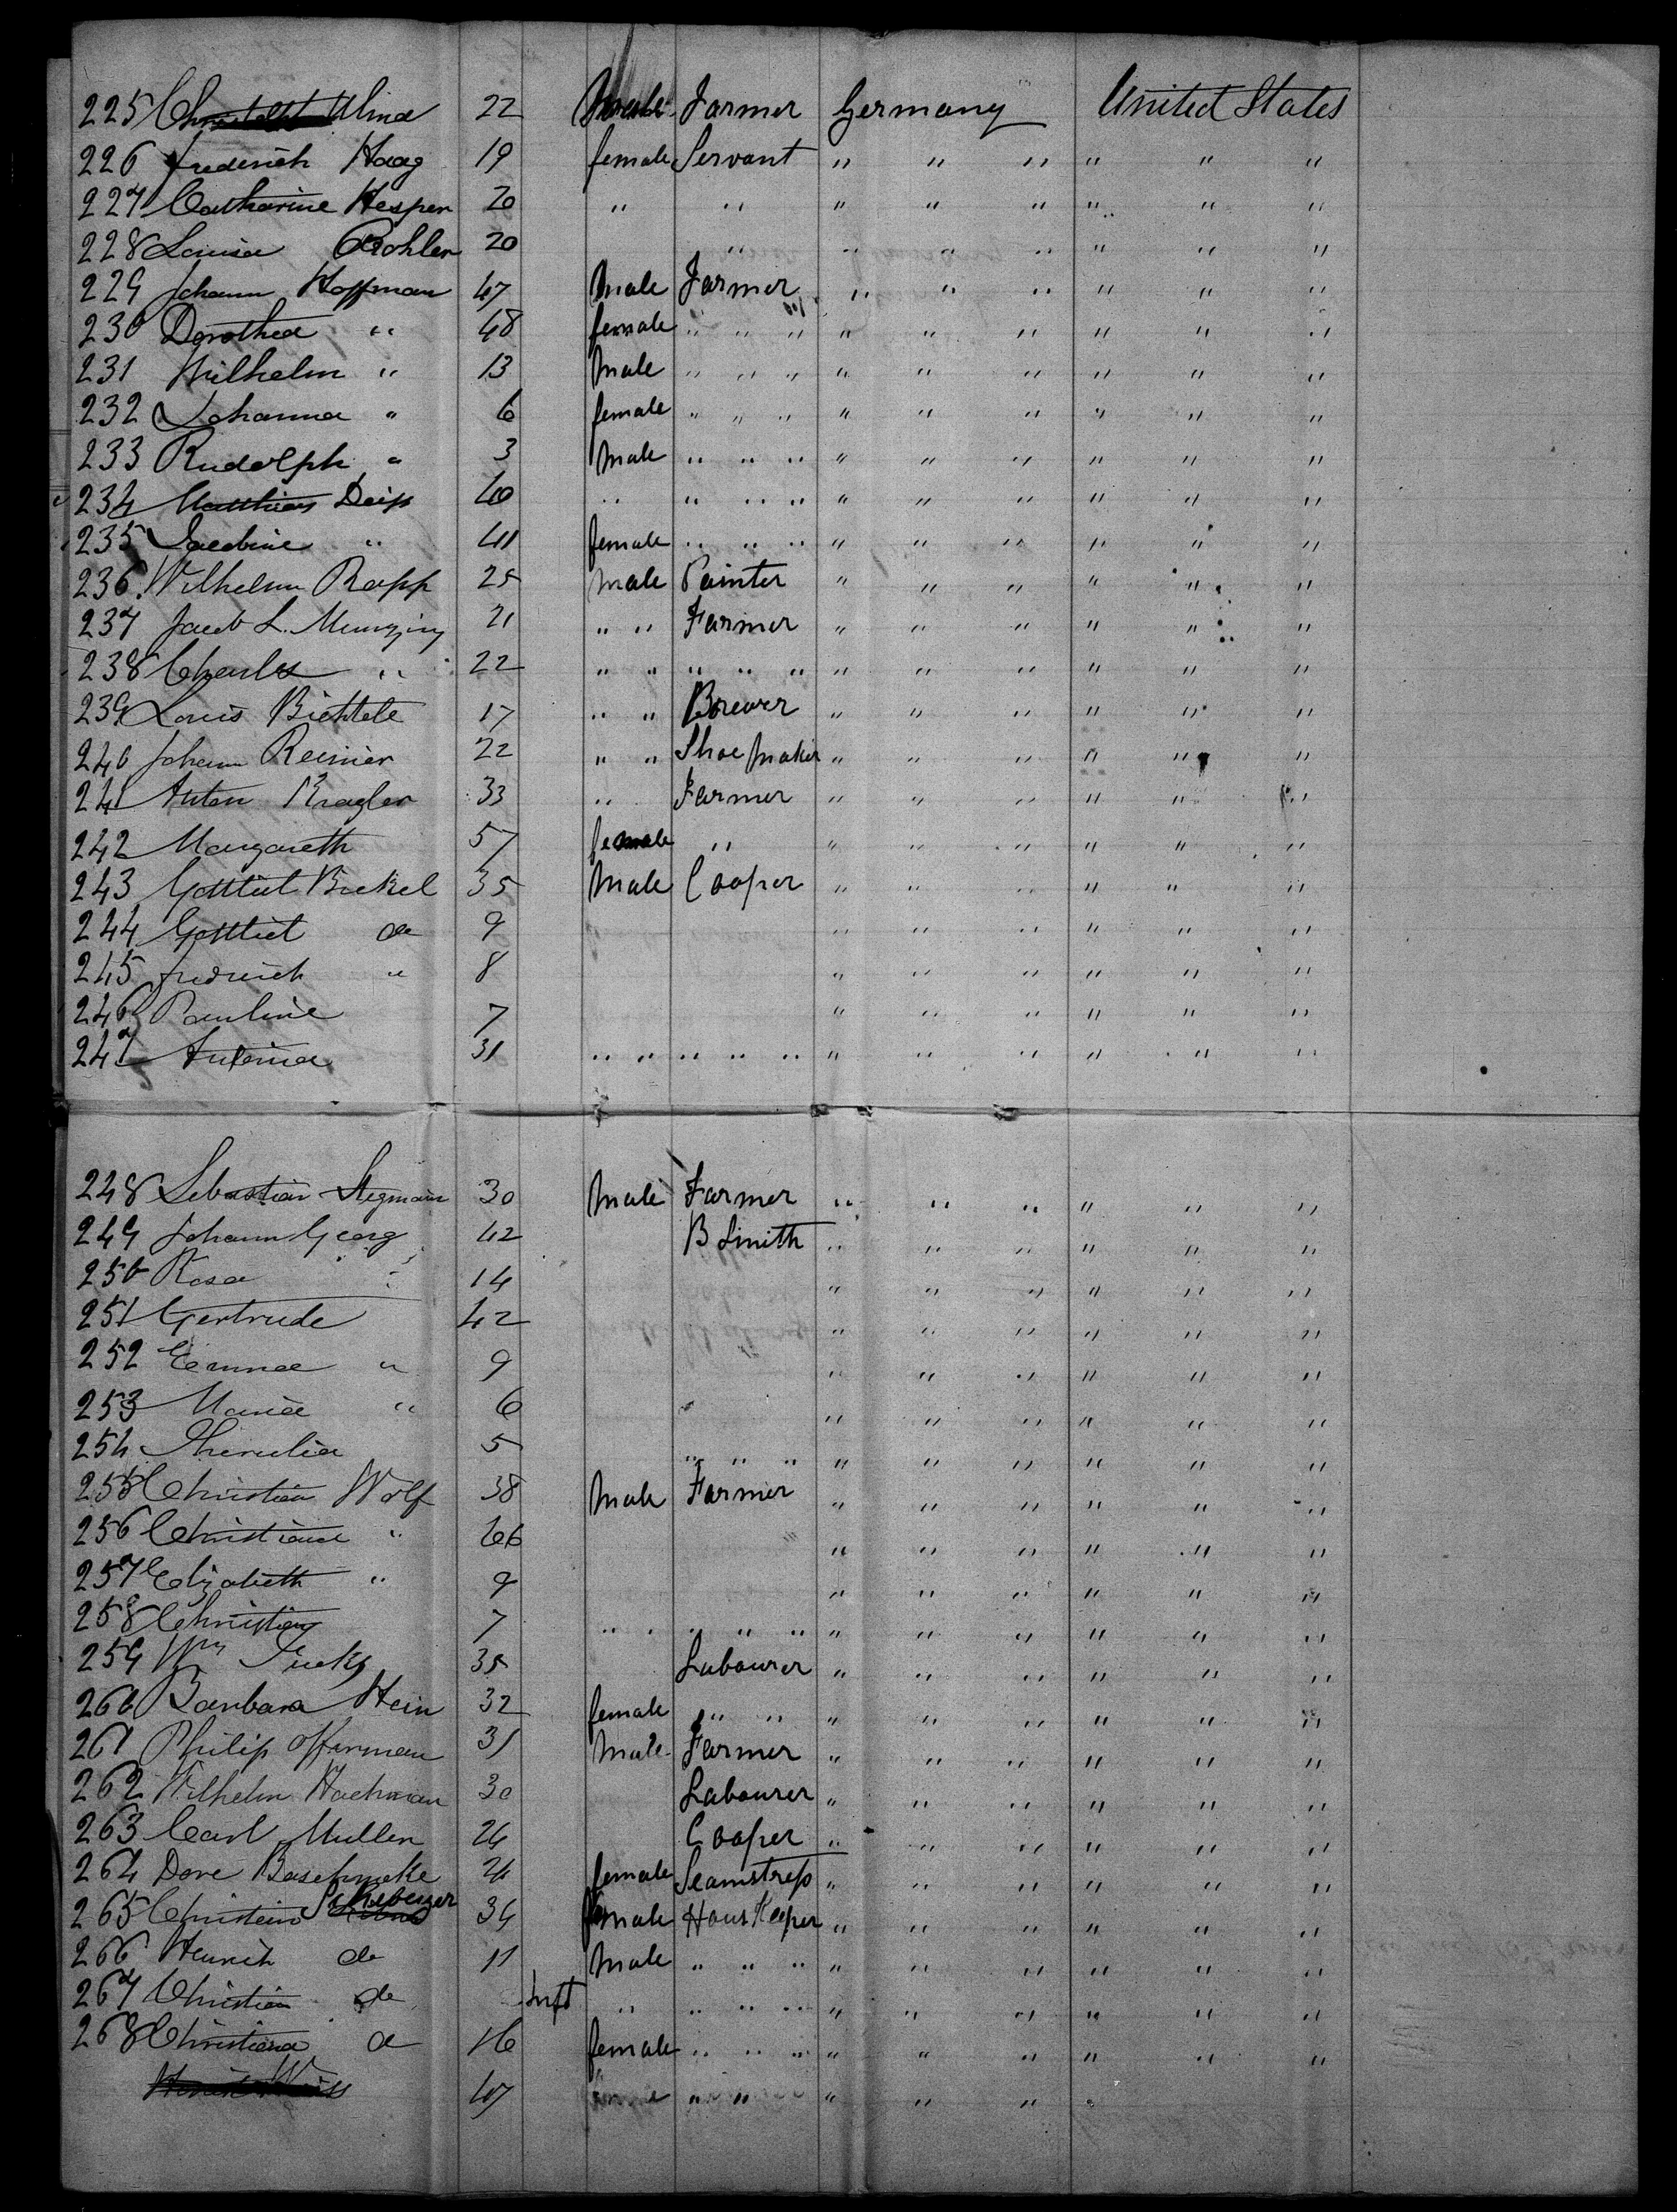 225 Ulmd 22 Male Farmer Germany United States
226 Frederich Haag 19 female Servant " " " " " "
227 Catharine Hesper 20 " " " " " " " "
228 Louisa 20 " " " " " " "
229 Johann Hoffman 47 Male Farmer " " " " " "
230 Dorothea " 48 female " " " " " " " " "
231 Wilhelm " 13 Male " " " " " " " " "
232 Johanna " 6 female " " " " " " " " "
233 Rudolph " 3 Male " " " " " " " " "
234 Matthias Deiss 40 " " " " " " " " " "
235 Jacobine " 41 female " " " " " " " " "
236 Wilhelm Rapp 25 Male Painter " " " " " "
237 Jacob L. Munzing 21 " " Farmer " " " " " "
238 Charles " 22 " " " " " " " " " " "
239 Louis Bichtele 17 " " Brewer " " " " " "
240 Johann Reinier 22 " " Shoe Maker " " " " " "
241 Anton Kragler 33 " Farmer " " " " " "
242 Margareth 57 female " " " " " " "
243 Gottlieb Bickel 35 Male Cooper " " " " " "
244 Gottliet do 9 " " " " " "
245 Fredrich " 8 " " " " " "
246 Pauline 7 " " " " " "
247 31 " " " " " " " " " " "
248 Sebastian Stegmain 30 Male Farmer " " " " " "
249 Johann Georg 42 B Smith " " " " " "
250 Rosa " 14 " " " " " "
251 Gertrude 42 " " " " " "
252 Emma " 9 " " " " " "
253 Maria " 6 " " " " " "
254 5 " " " " " " " " "
255 Christian Wolf 38 Male Farmer " " " " " "
256 Christiane " 66 " " " " " "
257 Elizabeth " 9 " " " " " "
258 Christian 7 " " " " " " " " " " "
259 Wm Fucks 35 Labourer " " " " " "
260 Barbara Hein 32 female " " " " " " " "
261 Philip Offerman 31 Male Farmer " " " " " "
262 Wilhelm Hachman 30 Labourer " " " " " "
263 Carl Muller 26 Cooper " " " " " "
264 Dore 24 female Seamstress " " " " " "
265 Christein 34 female Hous Keeper " " " " " "
266 Heinrich do 11 Male " " " " " " " " "
267 Christian do Inft " " " " " " " " " "
268 Christiana do 16 female " " " " " " " " "
47 " " " " "